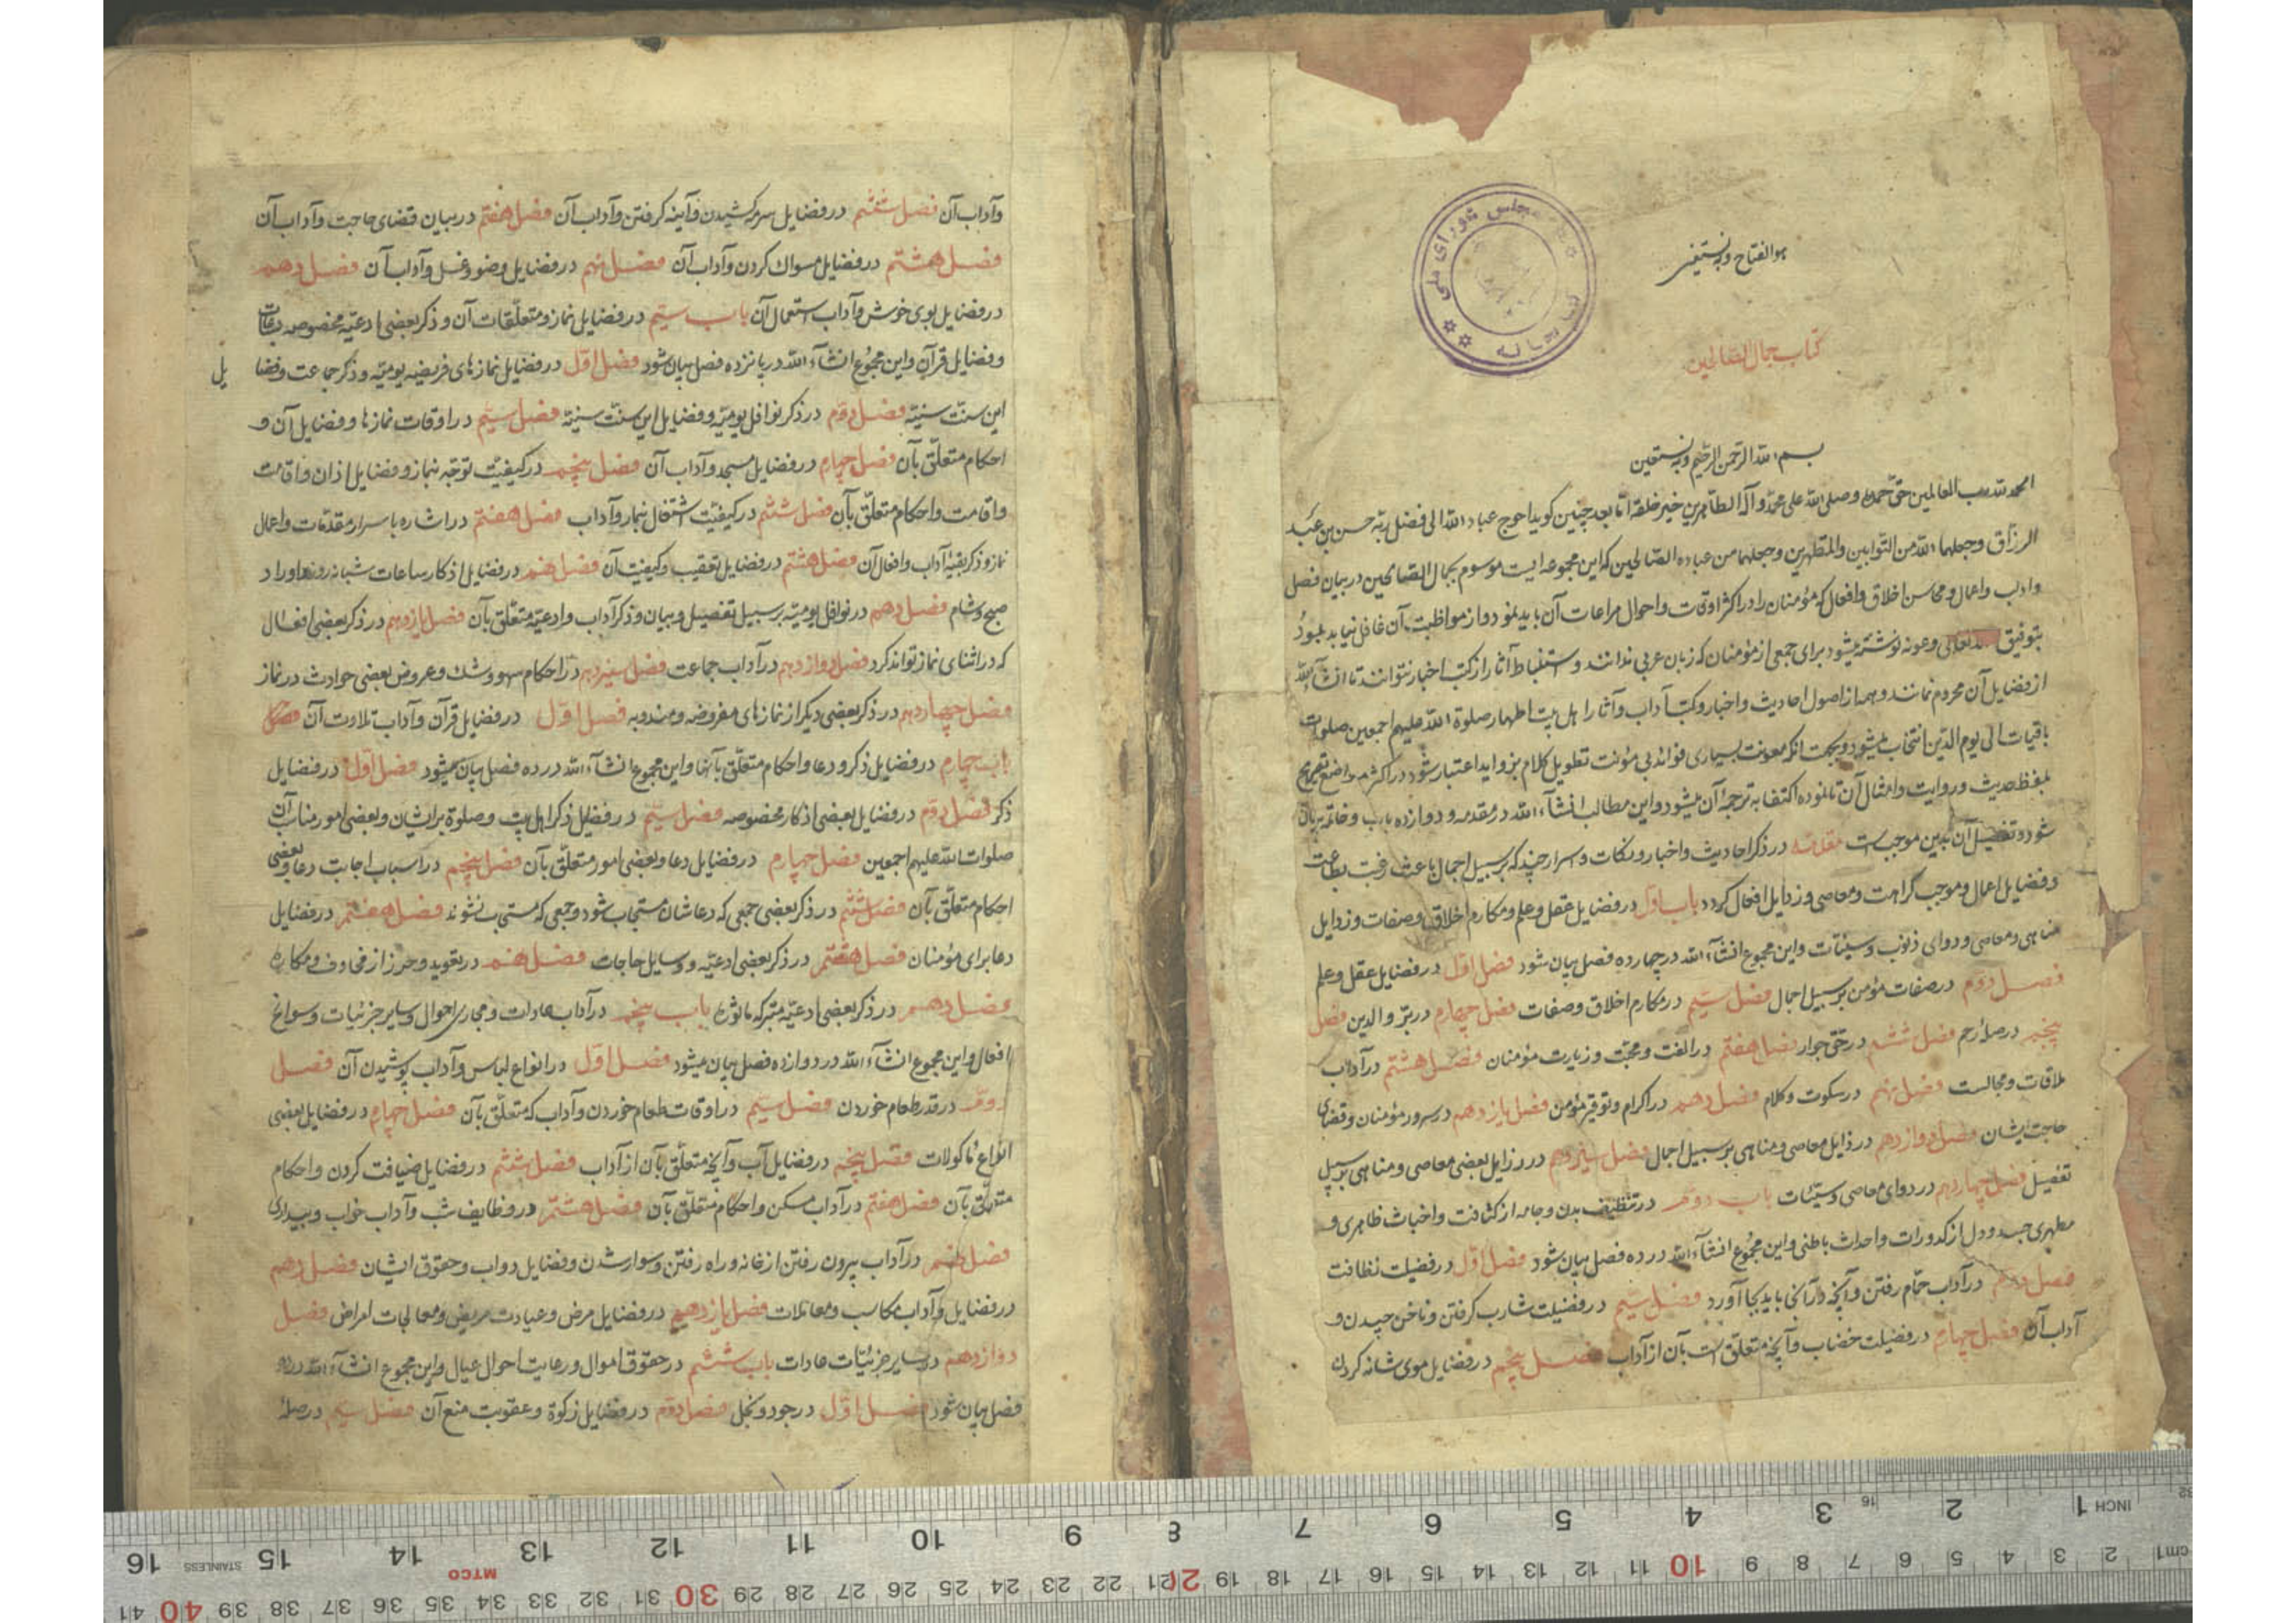 هوالفتاح وبه نستعین
کتاب جمال الصالحین
مجلس شورای ملی
کتابخانه
بسم الله الرحمن الرحیم وبه نستعین
الحمد لله رب العالمین حق حمده وصلی الله علی محمد وآله الطاهرین خیر خلقه اما بعد چنین کوید احوج عباد الله الی فضل ربه حسن بن عبد
الرزاق وجعلهما الله من التوابین والمتطهرین وجعلهما من عباده الصالحین که این مجموعه ایست موسوم بجمال الصالحین در بیان فضل
واداب واعمال ومحاسن اخلاق وافعال که مؤمنان را در اکثر اوقات واحوال مراعات آن باید نمود واز مواظبت آن غافل نباید بود
بتوفیق الله تعالی وعونه نوشته میشود برای جمعی از مؤمنان که زبان عربی ندانند واستنباط آثار از کتب اخبار نتوانند تا انشآء الله
از فضایل آن محروم نمانند وهمه از اصول احادیث واخبار وکتب آداب وآثار اهل بیت اطهار صلوة الله علیهم اجمعین صلوات
باقیات الی یوم الدین انتخاب میشود وبجهت آنکه معونت بسیاری فوائد بی مؤنت تطویل کلام بزواید اعتبار شود در اکثر مواضع تصریح
بلفظ حدیث وروایت وامثال آن نانموده اکتفا به ترجمه آن میشود واین مطالب انشآء الله در مقدمه و دوازده باب وخاتمه بیان
شود وتفصیل آن بدین موجب است مقدمه در ذکر احادیث واخبار ونکات واسرار چند که بر سبیل اجمال باعث رغبت بطاعت
وفضایل اعمال وموجب کراهت ومعاصی ورذایل افعال کردد باب اول در فضایل عقل وعلم ومکارم اخلاق وصفات ورذایل
مناهی ومعاصی ودوای ذنوب وسیئات واین مجموع انشآء الله در چهارده فصل بیان شود فصل اول در فضایل عقل وعلم
فصل دوم در صفات مؤمن بر سبیل اجمال فصل سیم در مکارم اخلاق وصفات فصل چهارم در بر والدین فصل
پنجم در صله ارحم فصل ششم در حق جوار فصل هفتم در الفت ومحبت وزیارت مؤمنان فصل هشتم در آداب
ملاقات ومجالست فصل نهم در سکوت وکلام فصل دهم در اکرام وتوقیر مؤمن فصل یازدهم در سرور مؤمنان وقضای
حاجت ایشان فصل دوازدهم در ذایل معاصی ومناهی بر سبیل اجمال فصل سیزدهم در رزایل بعضی معاصی ومناهی بر سبیل
تفصیل فصل چهاردهم در دوای معاصی وسیئات باب دوم در تنظیف بدن وجامه از کثافت واخباث ظاهری و
مطهری جسد ودل از کدورات واحداث باطنی واین مجموع انشآء الله در ده فصل بیان شود فصل اول در فضیلت نظافت
فصل دوم در آداب حمام رفتن وآنچه در آنجا باید بجا آورد فصل سیم در فضیلت شارب کرفتن وناخن چیدن و
آداب آن فصل چهارم در فضیلت خضاب وآنچه متعلق است بآن از آداب فصل پنجم در فضایل موی شانه کردن
وآداب آن فصل ششم در فضایل سرمه کشیدن وآینه کرفتن وآداب آن فصل هفتم در بیان قضای حاجت وآداب آن
فصل هشتم در فضایل مسواک کردن وآداب آن فصل نهم در فضایل وضو وغسل وآداب آن فصل دهم
در فضایل بوی خوش وآداب استعمال آن باب سیم در فضایل نماز ومتعلقات آن و ذکر بعضی ادعیه مخصوصه
وفضایل قرآن واین مجموع انشآء الله در پانزده فصل بیان شود فصل اول در فضایل نمازهای فریضه یومیه وذکر جماعت وفضایل
این سنت سنیه فصل دوم در ذکر نوافل یومیه وفضایل این سنت سنیه فصل سیم در اوقات نمازها وفضایل آن و
احکام متعلق بآن فصل چهارم در فضایل مسجد وآداب آن فصل پنجم در کیفیت توجه نماز وفضایل اذان واقامت
واقامت واحکام متعلق بآن فصل ششم در کیفیت اشتغال نماز وآداب فصل هفتم در اشاره باسرار مقدمات واعمال
نماز وذکر بقیه آداب وافعال آن فصل هشتم در فضایل تعقیب وکیفیت آن فصل نهم در فضایل اذکار ساعات شبانه روز واوراد
صبح وشام فصل دهم در نوافل یومیه بر سبیل تفصیل وبیان وذکر آداب وادعیه متعلق بآن فصل یازدهم در ذکر بعضی افعال
که در اثنای نماز تواند کرد فصل دوازدهم در آداب جماعت فصل سیزدهم در احکام سهو وشک وعروض بعضی حوادث در نماز
فصل چهاردهم در ذکر بعضی دیکر از نمازهای مفروضه ومندوبه فصل اول در فضایل قرآن وآداب تلاوت آن
باب چهارم در فضایل ذکر ودعا واحکام متعلق بآنها واین مجموع انشآء الله در ده فصل بیان میشود فصل اول در فضایل
ذکر فصل دوم در فضایل بعضی اذکار مخصوصه فصل سیم در فضایل ذکر اهل بیت وصلوة بر ایشان وبعضی امور مناسب آن
صلوات الله علیهم اجمعین فصل چهارم در فضایل دعا وبعضی امور متعلق بآن فصل پنجم در اسباب اجابت دعا وبعضی
احکام متعلق بآن فصل ششم در ذکر بعضی جمعی که دعاشان مستجاب شود وجمعی که مستجاب نشوند فصل هفتم در فضایل
دعا برای مؤمنان فصل هفتم در ذکر بعضی ادعیه ووسایل حاجات فصل نهم در تعوید وحرز از مخاوف ومکاره
فصل دهم در ذکر بعضی ادعیه متبرکه ماثوره باب پنجم در آداب عادات ومجاری احوال وسایر جزئیات وسوانح
افعال واین مجموع انشآء الله در دوازده فصل بیان میشود فصل اول در انواع لباس وآداب پوشیدن آن فصل
دوم در قدر طعام خوردن فصل سیم در اوقات طعام خوردن وآداب که متعلق بآن فصل چهارم در فضایل بعضی
انواع مأکولات فصل پنجم در فضایل آب وآنچه متعلق بآن از آداب فصل ششم در فضایل ضیافت کردن واحکام
متعلق بآن فصل هفتم در آداب مسکن واحکام متعلق بآن فصل هشتم در وظایف شب وآداب خواب وبیداری
فصل نهم در آداب بیرون رفتن از خانه وراه رفتن وسوار شدن وفضایل دواب وحقوق ایشان فصل دهم
در فضایل وآداب مکاسب ومعاملات فصل یازدهم در فضایل مرض وعیادت مریض ومعالجات امراض فصل
دوازدهم در سایر جزئیات عادات باب ششم در حقوق اموال ورعایت احوال عیال واین مجموع انشآء الله در ده
فصل بیان شود فصل اول در جود وبخل فصل دوم در فضایل زکوة وعقوبت منع آن فصل سیم در صله
1 INCH 2 3 4 5 6 7 8 9 10 11 12 13 14 15 16
MTCO STAINLESS
cm 1 2 3 4 5 6 7 8 9 10 11 12 13 14 15 16 17 18 19 20 21 22 23 24 25 26 27 28 29 30 31 32 33 34 35 36 37 38 39 40 41